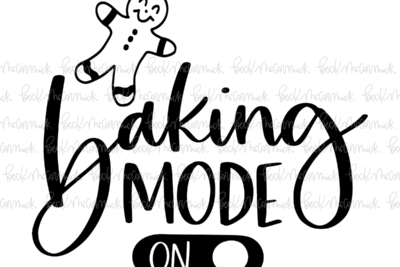 baking
MODE
ON